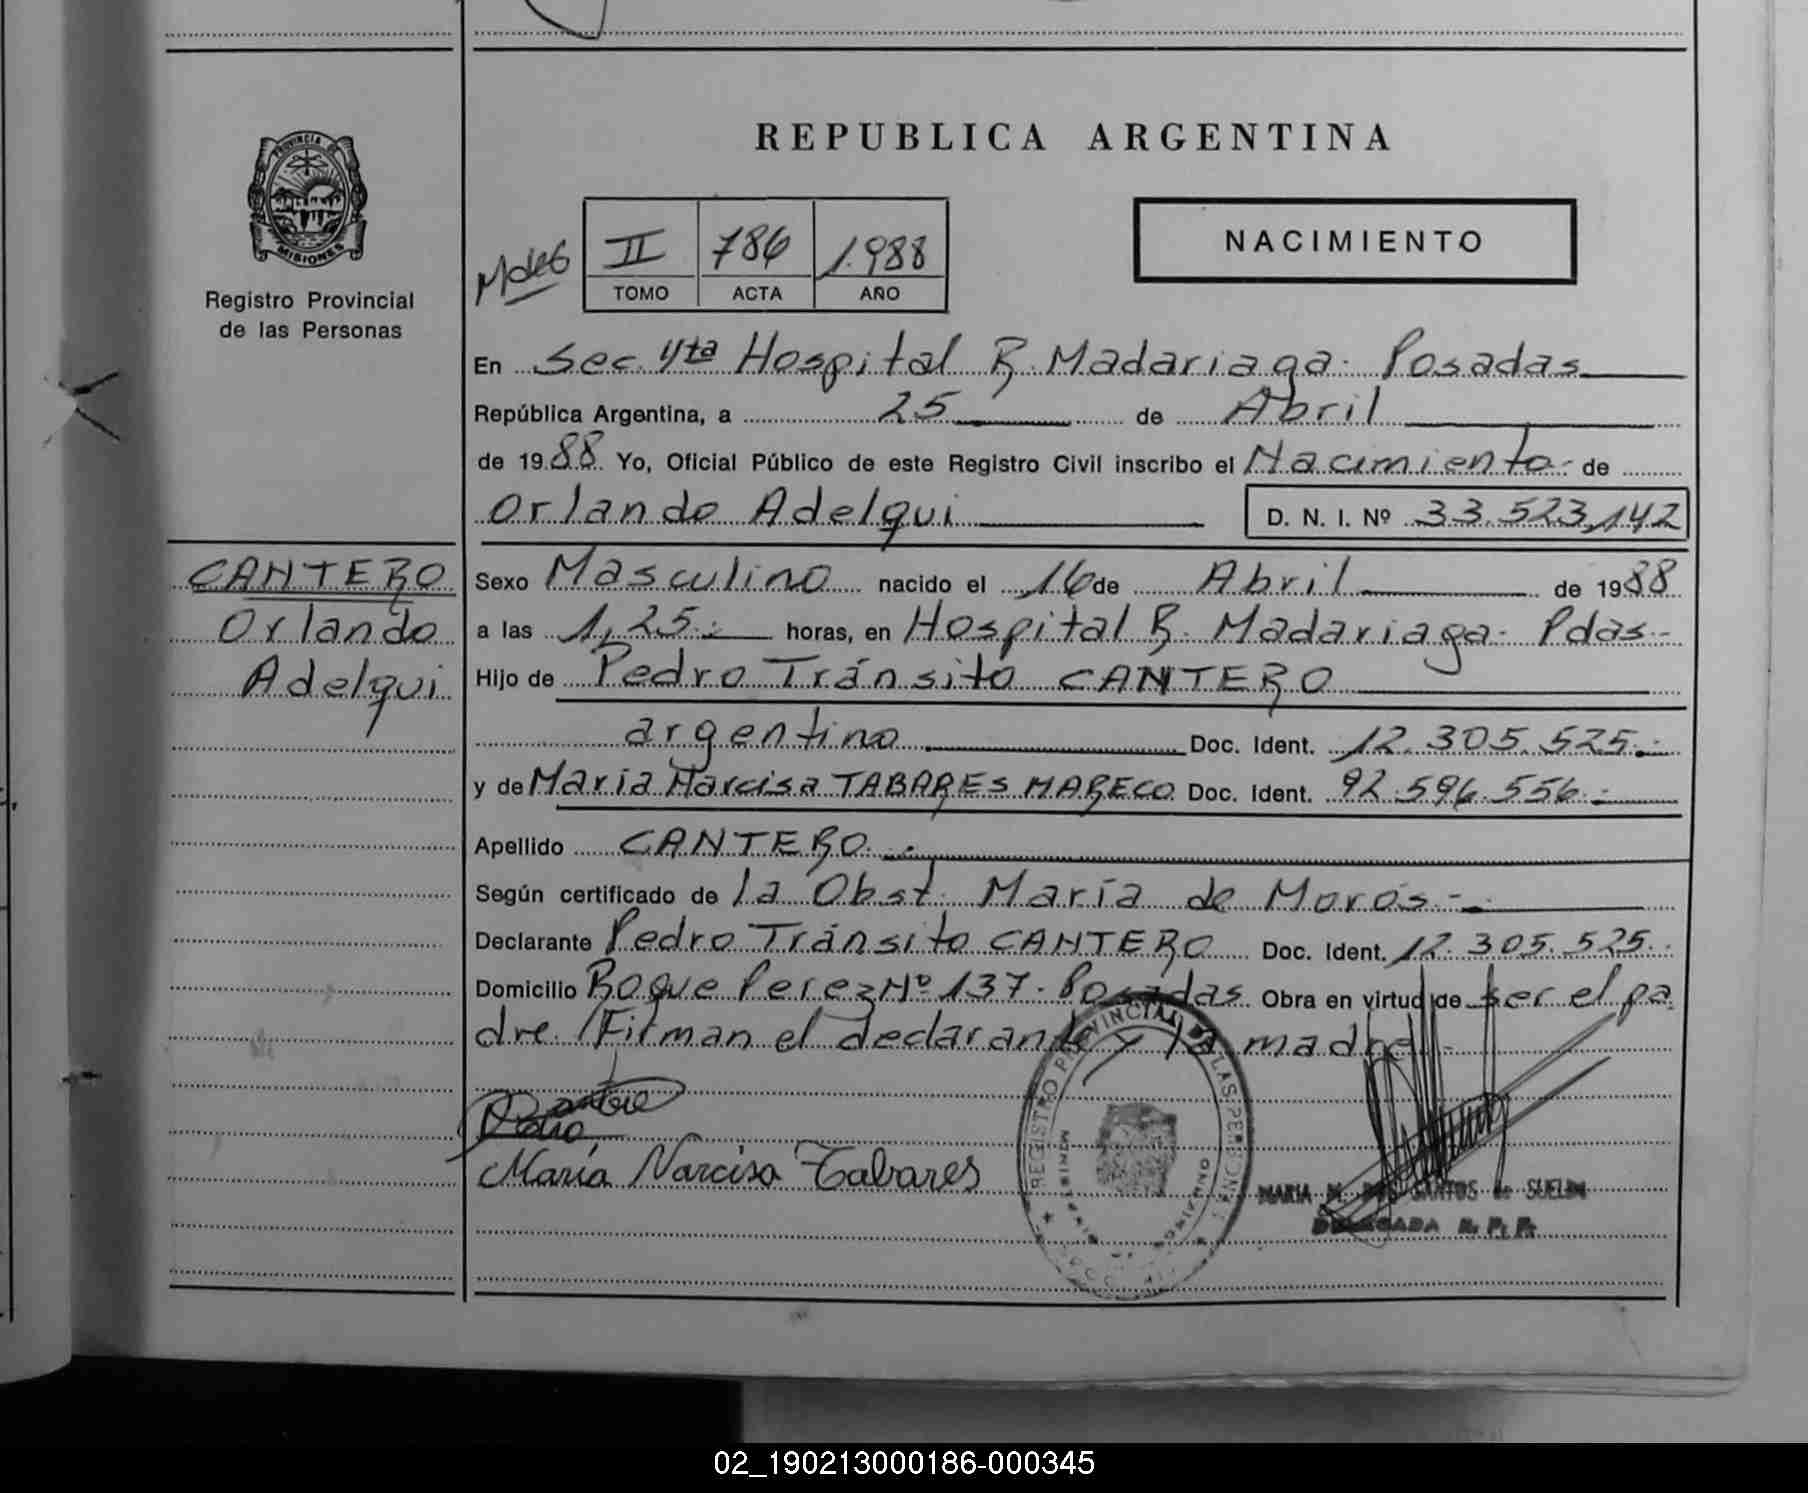 PROVINCIA DE
MISIONES
Registro Provincial
de las Personas
CANTERO
Orlando
Adelqui
REPUBLICA ARGENTINA
II 786 1.988
TOMO ACTA AÑO
NACIMIENTO
En Sec. 4ta Hospital R. Madariaga - Posadas
República Argentina, a 25 de Abril
de 1988 Yo, Oficial Público de este Registro Civil inscribo el Nacimiento - de
Orlando Adelqui D. N. I. Nº 33.523,142
Sexo Masculino nacido el 16 de Abril de 1988
a las 1,25.- horas, en Hospital R. Madariaga - Pdas -
Hijo de Pedro Tránsito CANTERO
argentino Doc. Ident. 12.305.525.-
y de María Narcisa TABARES MARECO Doc. Ident. 92.596.556.-
Apellido CANTERO.-
Según certificado de la Obst. María de Moros -
Declarante Pedro Tránsito CANTERO Doc. Ident. 12.305.525.-
Domicilio Roque Perez Nº 137 - Posadas Obra en virtud de ser el pa
dre. Firman el declarante y la madre -
Pedro
María Narcisa Tabares
REGISTRO PROVINCIAL DE LAS PERSONAS
MARIA SANTOS de SUELDI
DELEGADA R. P. P.
02_190213000186-000345